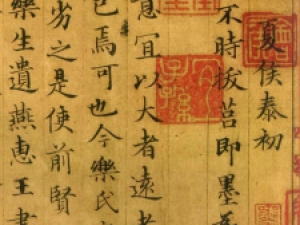 夏侯泰初
不時拔莒即墨
意宜以大者遠者
已焉可也今樂氏
劣之是使前賢
樂生遺燕惠王書